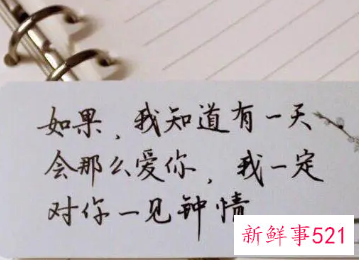 如果，我知道有一天
会那么爱你，我一定
对你一见钟情
新鲜事521